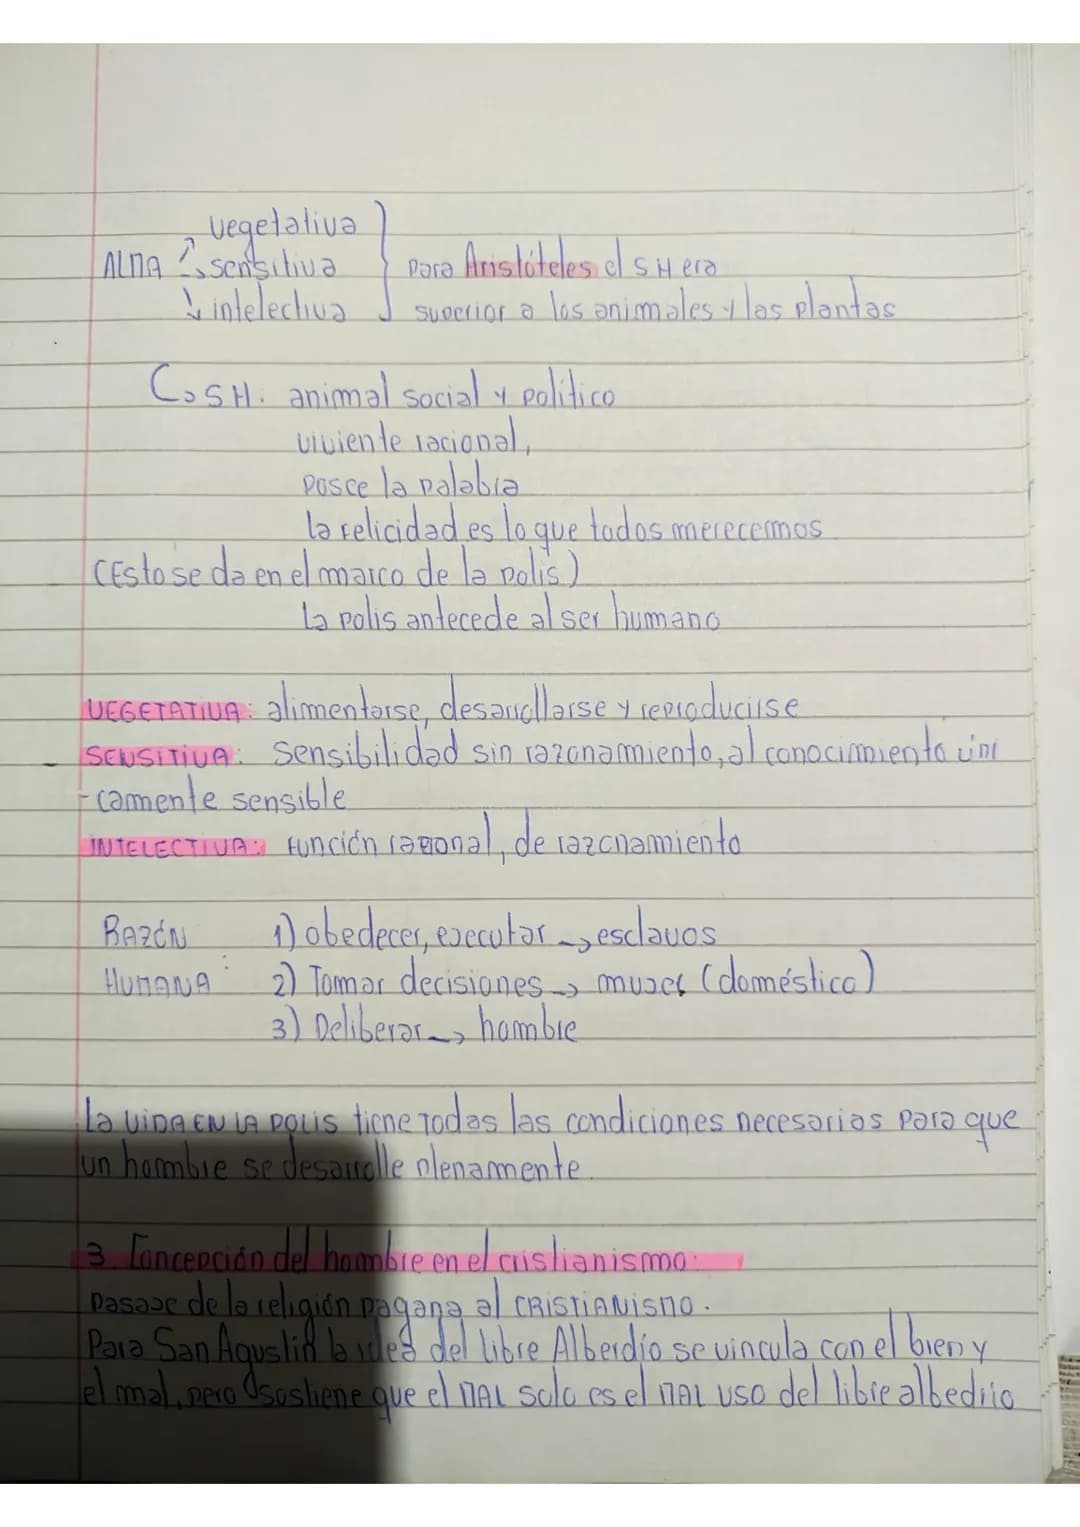 vegetativa
ALMA sensitiva para Aristóteles el SH era
intelectiva superior a los animales y las plantas
SH: animal social y político
viviente racional,
posee la palabra
la felicidad es lo que todos merecemos
(Esto se da en el marco de la polis)
La polis antecede al ser humano
VEGETATIVA: alimentarse, desarrollarse y reproducirse
SENSITIVA: Sensibilidad sin razonamiento, al conocimiento úni
-camente sensible
INTELECTIVA: función racional, de razonamiento
RAZÓN 1) obedecer, ejecutar → esclavos
HUMANA: 2) Tomar decisiones → mujer (doméstico)
3) Deliberar → hombre
La VIDA EN LA POLIS tiene todas las condiciones necesarias para que
un hombre se desarrolle plenamente.
3. Concepción del hombre en el cristianismo:
Pasaje de la religión pagana al CRISTIANISMO.
Para San Agustín la idea del libre Alberdío se vincula con el bien y
el mal, pero sostiene que el MAL solo es el MAL USO del libre albedrío